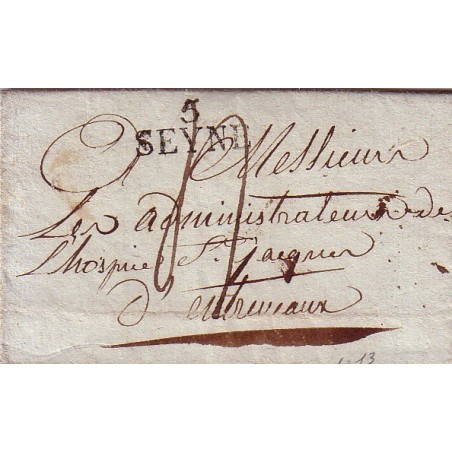 5
SEYNE
A Messieurs
Les administrateurs de
L'hospice St. Jacques
D'entrevaux